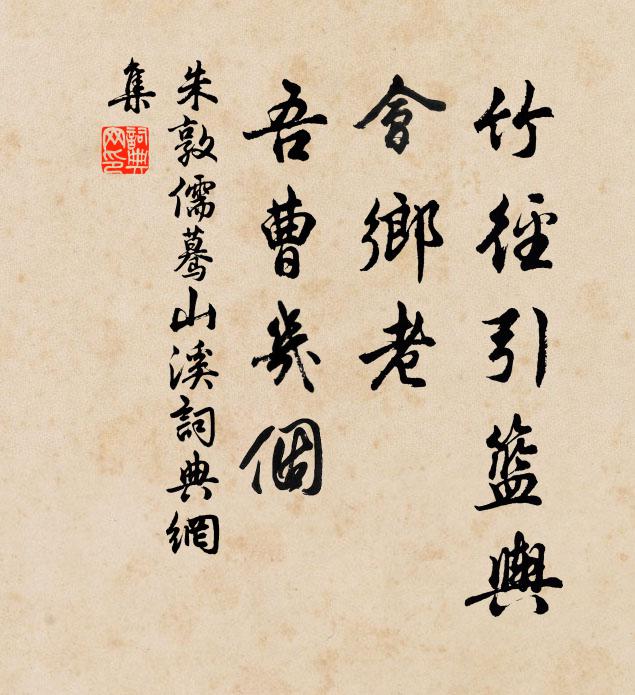 竹徑引籃輿
會鄉老
吾曹幾個
朱敦儒驀山溪詞典網
集
詞典網印